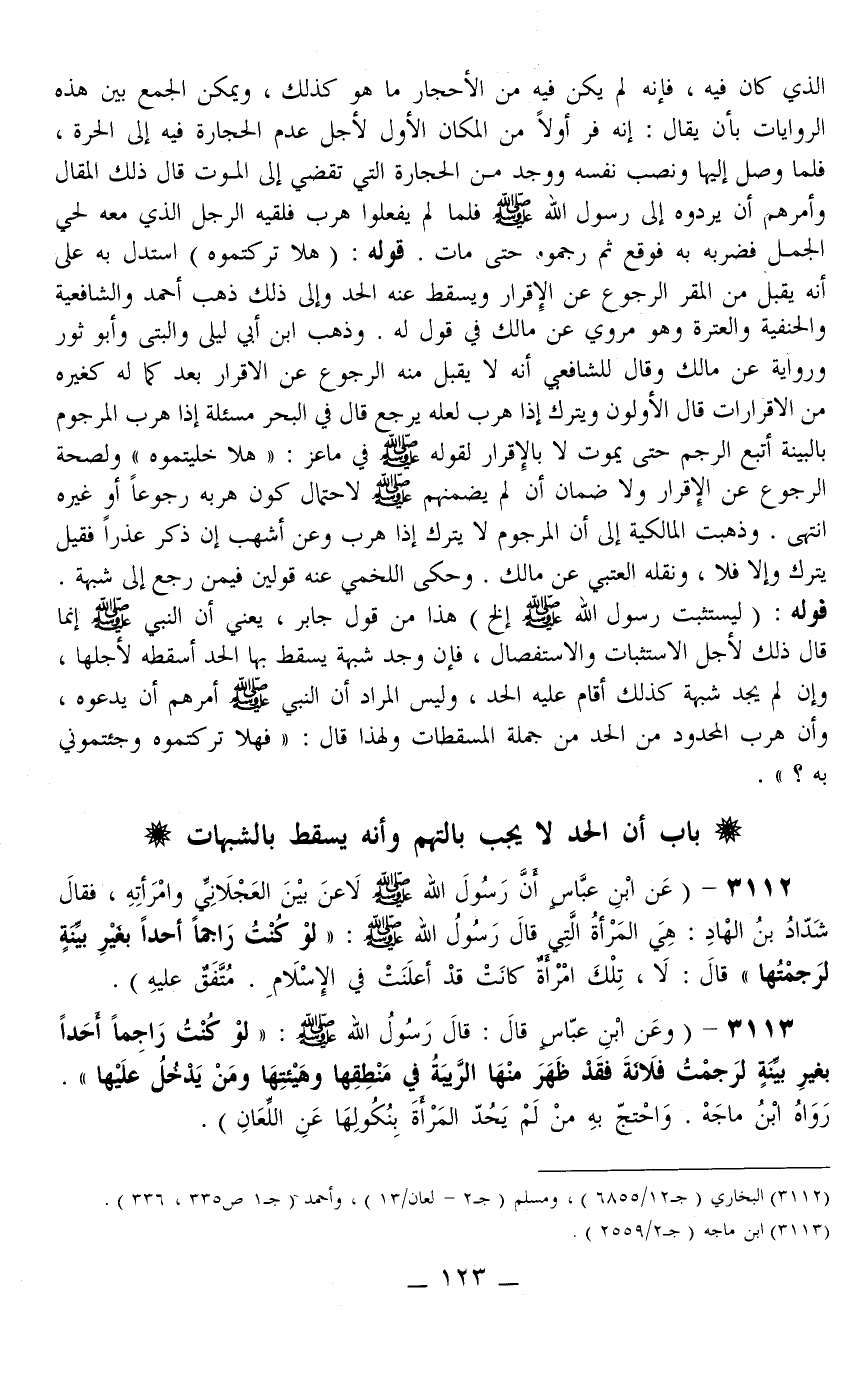 الذي كان فيه ، فإنه لم يكن فيه من الأحجار ما هو كذلك ، ويمكن الجمع بين هذه
الروايات بأن يقال : إنه فر أولاً من المكان الأول لأجل عدم الحجارة فيه إلى الحرة ،
فلما وصل إليها ونصب نفسه ووجد من الحجارة التي تقضي إلى الموت قال ذلك المقال
وأمرهم أن يردوه إلى رسول الله ﷺ فلما لم يفعلوا هرب فلقيه الرجل الذي معه لحي
الجمل فضربه به فوقع ثم رجموه حتى مات . قوله : ( هلا تركتموه ) استدل به على
أنه يقبل من المقر الرجوع عن الإقرار ويسقط عنه الحد وإلى ذلك ذهب أحمد والشافعية
والحنفية والعترة وهو مروي عن مالك في قول له . وذهب ابن أبي ليلى والبتى وأبو ثور
ورواية عن مالك وقال للشافعي أنه لا يقبل منه الرجوع عن الاقرار بعد كما له كغيره
من الاقرارات قال الأولون ويترك إذا هرب لعله يرجع قال في البحر مسئلة إذا هرب المرجوم
بالبينة أتبع الرجم حتى يموت لا بالإقرار لقوله ﷺ في ماعز : « هلا خليتموه » ولصحة
الرجوع عن الإقرار ولا ضمان أن لم يضمنهم ﷺ لاحتمال كون هربه رجوعاً أو غيره
انتهى . وذهبت المالكية إلى أن المرجوم لا يترك إذا هرب وعن أشهب إن ذكر عذراً فقيل
يترك وإلا فلا ، ونقله العتبي عن مالك . وحكى اللخمي عنه قولين فيمن رجع إلى شبهة .
قوله : ( ليستثبت رسول الله ﷺ إلخ ) هذا من قول جابر ، يعني أن النبي ﷺ إنما
قال ذلك لأجل الاستثبات والاستفصال ، فإن وجد شبهة يسقط بها الحد أسقطه لأجلها ،
وإن لم يجد شبهة كذلك أقام عليه الحد ، وليس المراد أن النبي ﷺ أمرهم أن يدعوه ،
وأن هرب المحدود من الحد من جملة المسقطات ولهذا قال : « فهلا تركتموه وجئتموني
به ؟ » .
باب أن الحد لا يجب بالتهم وأنه يسقط بالشبهات
٣١١٢ - ( عَن ابْنِ عبَّاسٍ أَنَّ رَسُولَ الله ﷺ لَاعنَ بَيْنَ العَجْلَانِّي وامْرَأتِهِ ، فقالَ
شَدّادُ بنُ الْهَادِ : هِيَ المَرْأةُ الَّتِي قالَ رَسُولُ الله ﷺ : « لوْ كُنْتُ رَاجماً أحداً بغَيْرِ بيِّنَةٍ
لرَجمْتُها » قالَ : لَا ، تِلْكَ امْرَأةٌ كانَتْ قدْ أعلَنَتْ في الإسْلَامِ . مُتَّفَقٌ عليهِ ) .
٣١١٣ - ( وعَن ابْنِ عبّاسٍ قالَ : قالَ رَسُولُ الله ﷺ : « لوْ كُنْتُ رَاجِماً أَحَداً
بغيرِ بيِّنَةٍ لرَجمْتُ فلَانَةَ فقَدْ ظَهَرَ منْهَا الرِّيبَةُ في مَنْطقِها وهَيْئتِهَا ومَنْ يَدْخُلُ علَيْها » .
رَوَاهُ ابْنُ ماجَهْ . وَاحْتجّ بهِ منْ لَمْ يَحُدّ المَرْأةَ بِنُكُولِهَا عَنِ اللِّعَانِ ) .
(٣١١٢) البخاري ( جـ١٢/ ٦٨٥٥ ) ، ومسلم ( جـ٢ - لعان/١٣ ) ، وأحمد ( جـ١ ص٣٣٥ ، ٣٣٦ ) .
(٣١١٣) ابن ماجه ( جـ٢/ ٢٥٥٩ ) .
_ ١٢٣ _